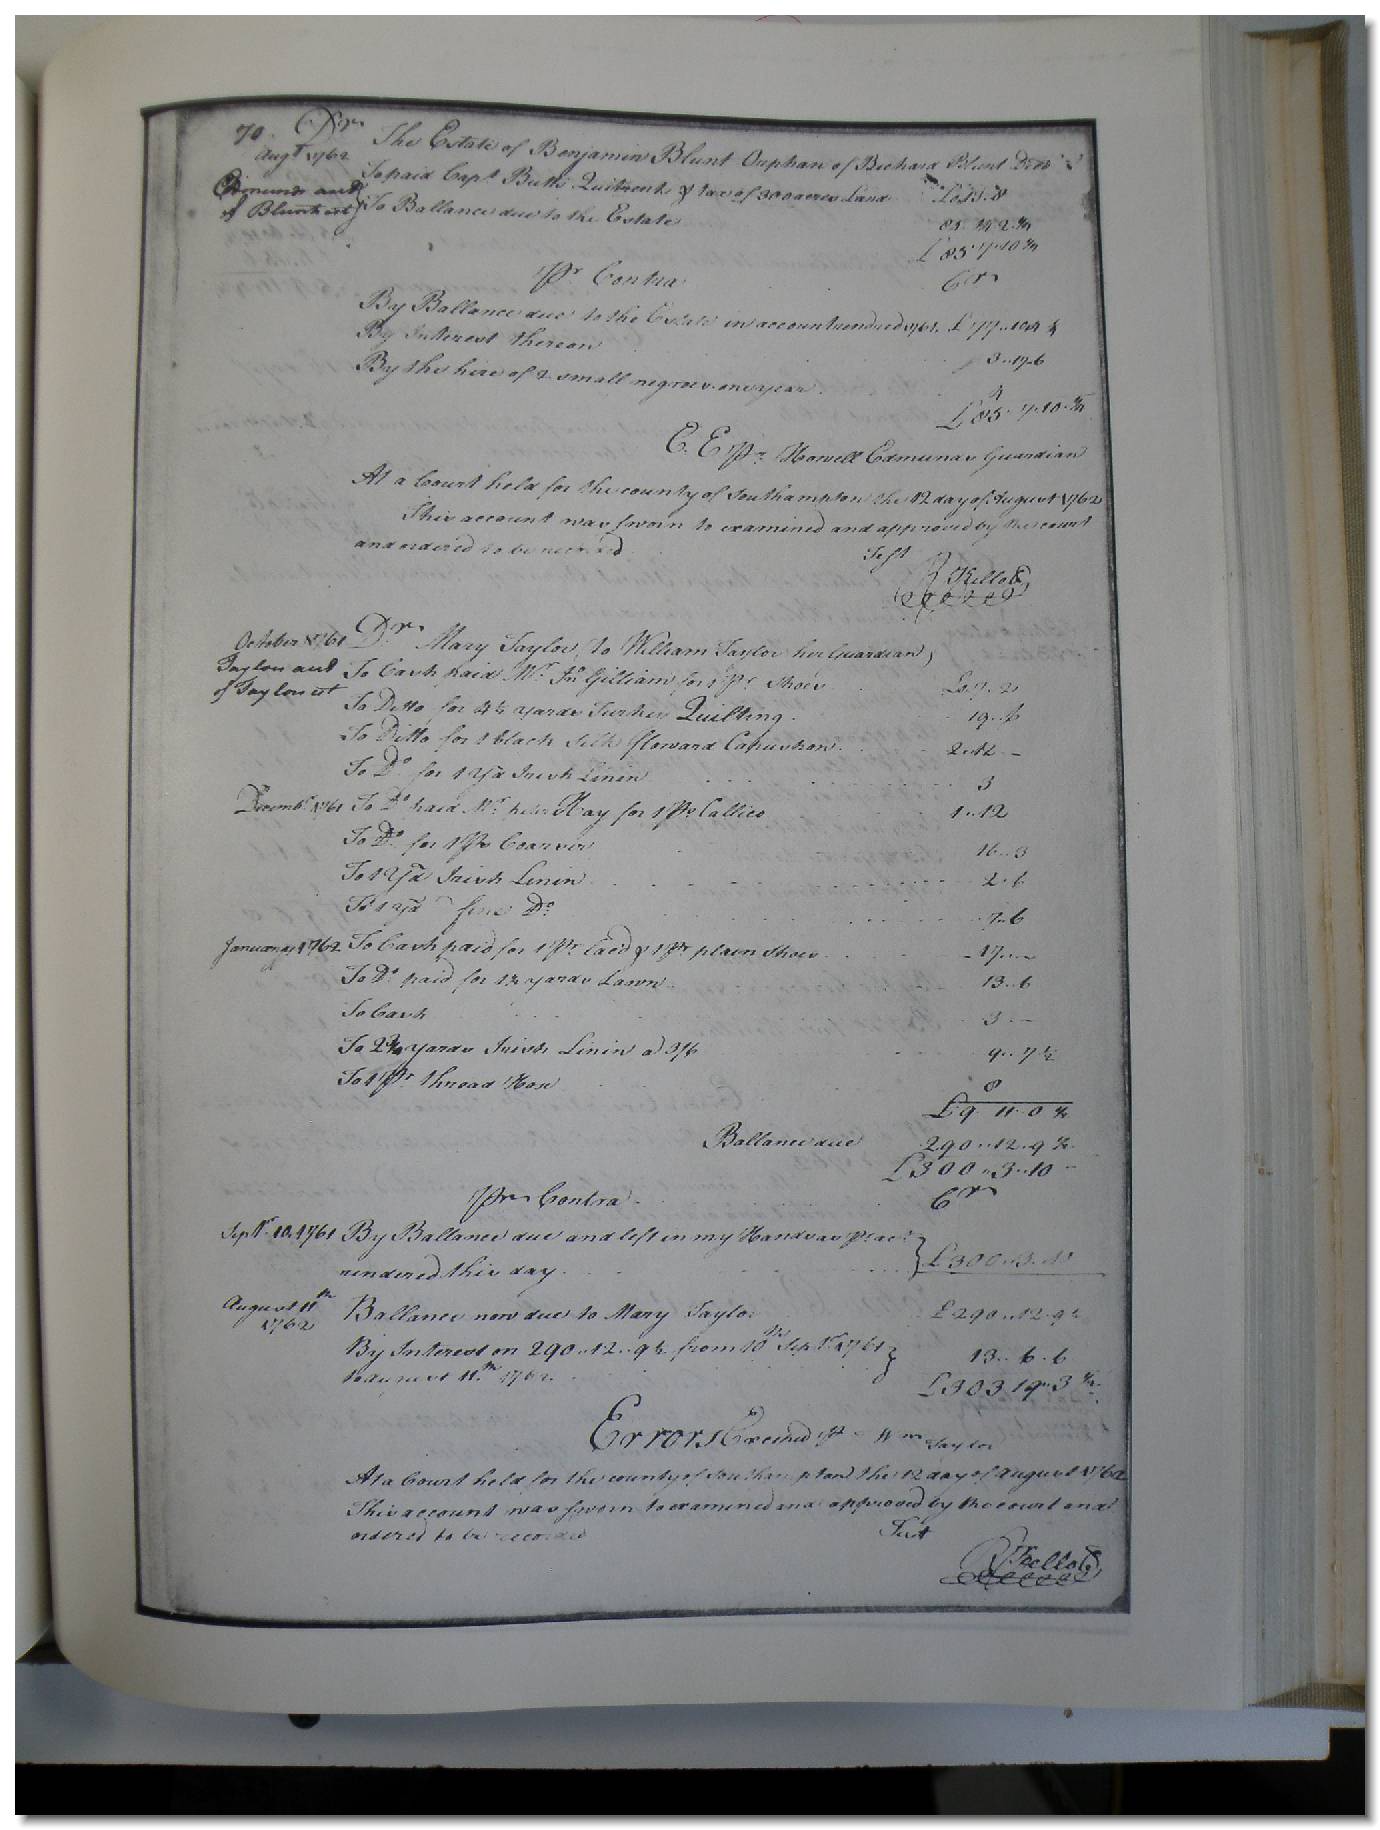 70. Dr. The Estate of Benjamin Blunt Orphan of Richard Blunt Decd
Augt 1762 To paid Capt Butts Quitrents & tax of 300 acres Land £0.13.8
Edmunds and To Ballance due to the Estate
of Blunt est
£85.7.10¾
Pr Contra Cr
By Ballance due to the Estate in account rendered 1761. £77..10.4¾
By Interest thereon 3..17.6
By the hire of 2 small negroes one year 4
£85.7.10.¾
E. E Pr Howell Edmunds Guardian
At a Court held for the county of Southampton the 12 day of August 1762
This account was sworn to examined and approved by the court
and ordered to be recorded
Test
R Kello C
October 1761 Dr. Mary Taylor, to William Taylor her Guardian
Taylor and To Cash paid Mr Jno Gilliam for 1 Pr Shoes £0.7.2
of Taylor est To Ditto for 4½ yards Turkey Quilting. 19..6
To Ditto for 1 black Silk flowerd Capushon 2.12 -
To Do for 1 Yd Irish Linin 3
Decembr 1761 To Do paid Mr Hay for 1 Ps Callico 1..12
To Do for 1 Ps 16..3
To 1 Yd Irish Linin 2.6
To 1 Yd fine Do 7.6
January 1762 To Cash paid for 1 Pr Laed & 1 Pr plain Shoes 17..-
To Do paid for 1¾ yards Lawn 13..6
To Cash 3 -
To 2¾ yards Irish Linin a 3/6 9..7½
To 1 Pr thread Hose 8
£9 11.0½
Ballance due 290..12..9½
£300..3..10
Pr Contra Cr
Septr 10.1761 By Ballance due and left in my Hands as Pr acct
rendered this day £300..3..10
August 11th Ballance now due to Mary Taylor £290..12.9½
1762
By Interest on 290..12..9½ from 10th Septr 1761
to August 11th 1762. 13..6.6
£303 19..3½
Errors Excepted Pr Wm Taylor
At a Court held for the county of Southampton the 12 day of August 1762
This account was sworn to examined and approved by the court and
ordered to be recorded
Test
R Kello C